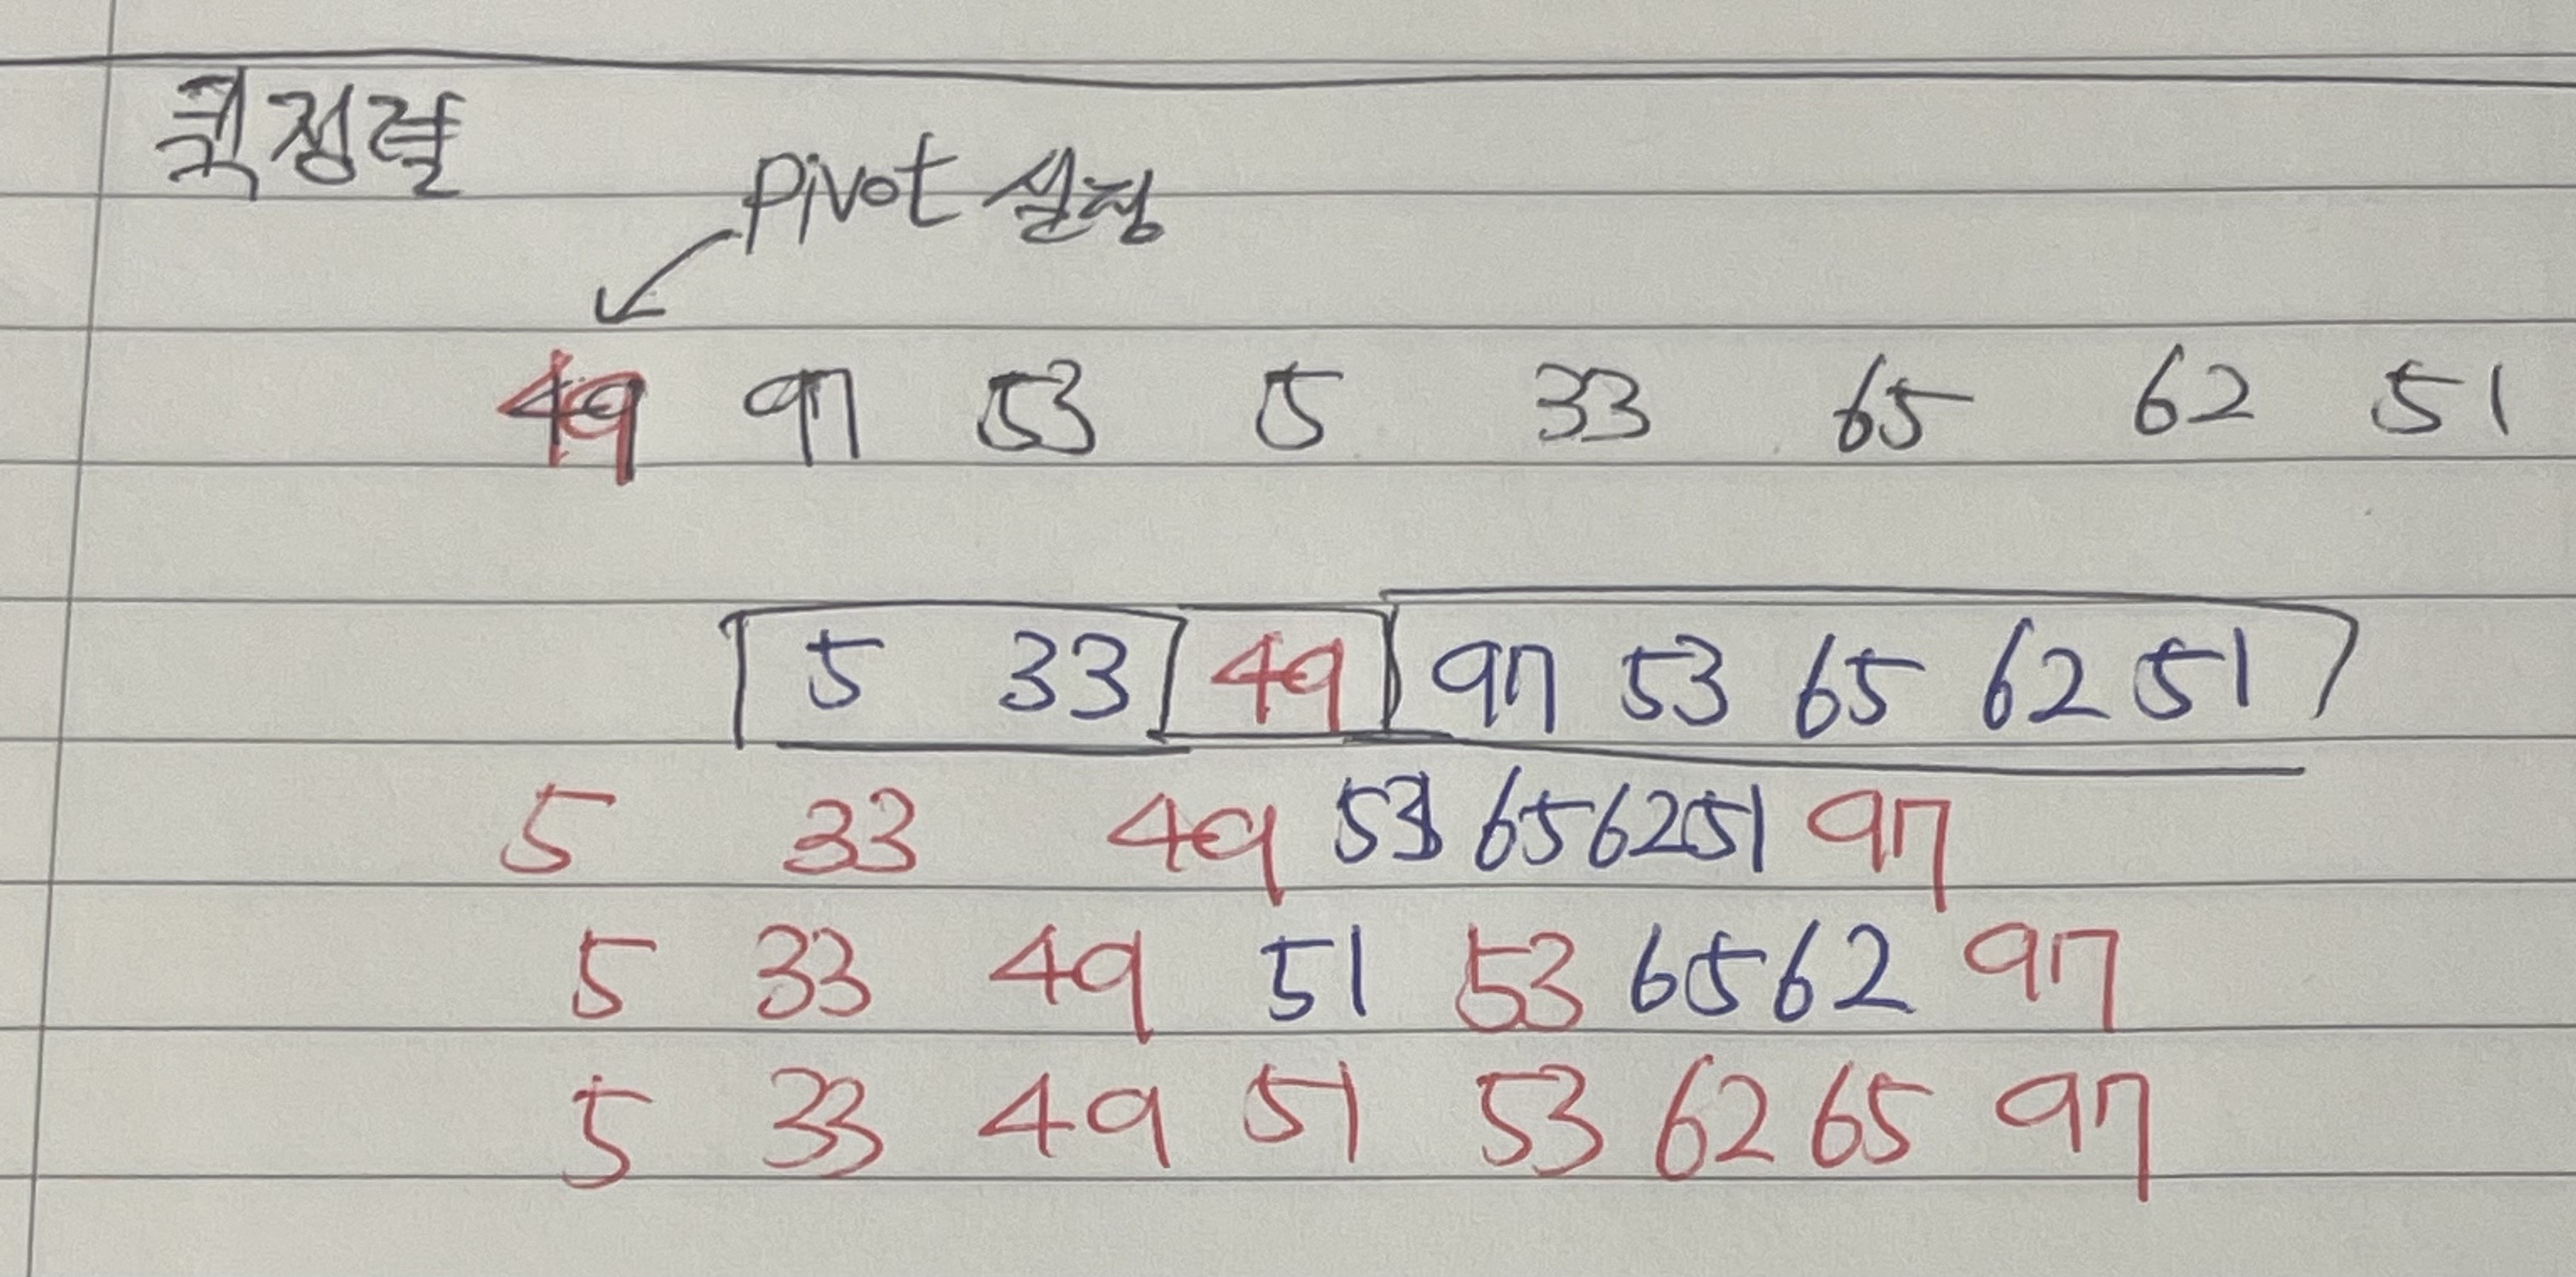 퀵정렬
pivot 설정
49 97 53 5 33 65 62 51
5 33 49 97 53 65 62 51
5 33 49 53 65 62 51 97
5 33 49 51 53 65 62 97
5 33 49 51 53 62 65 97